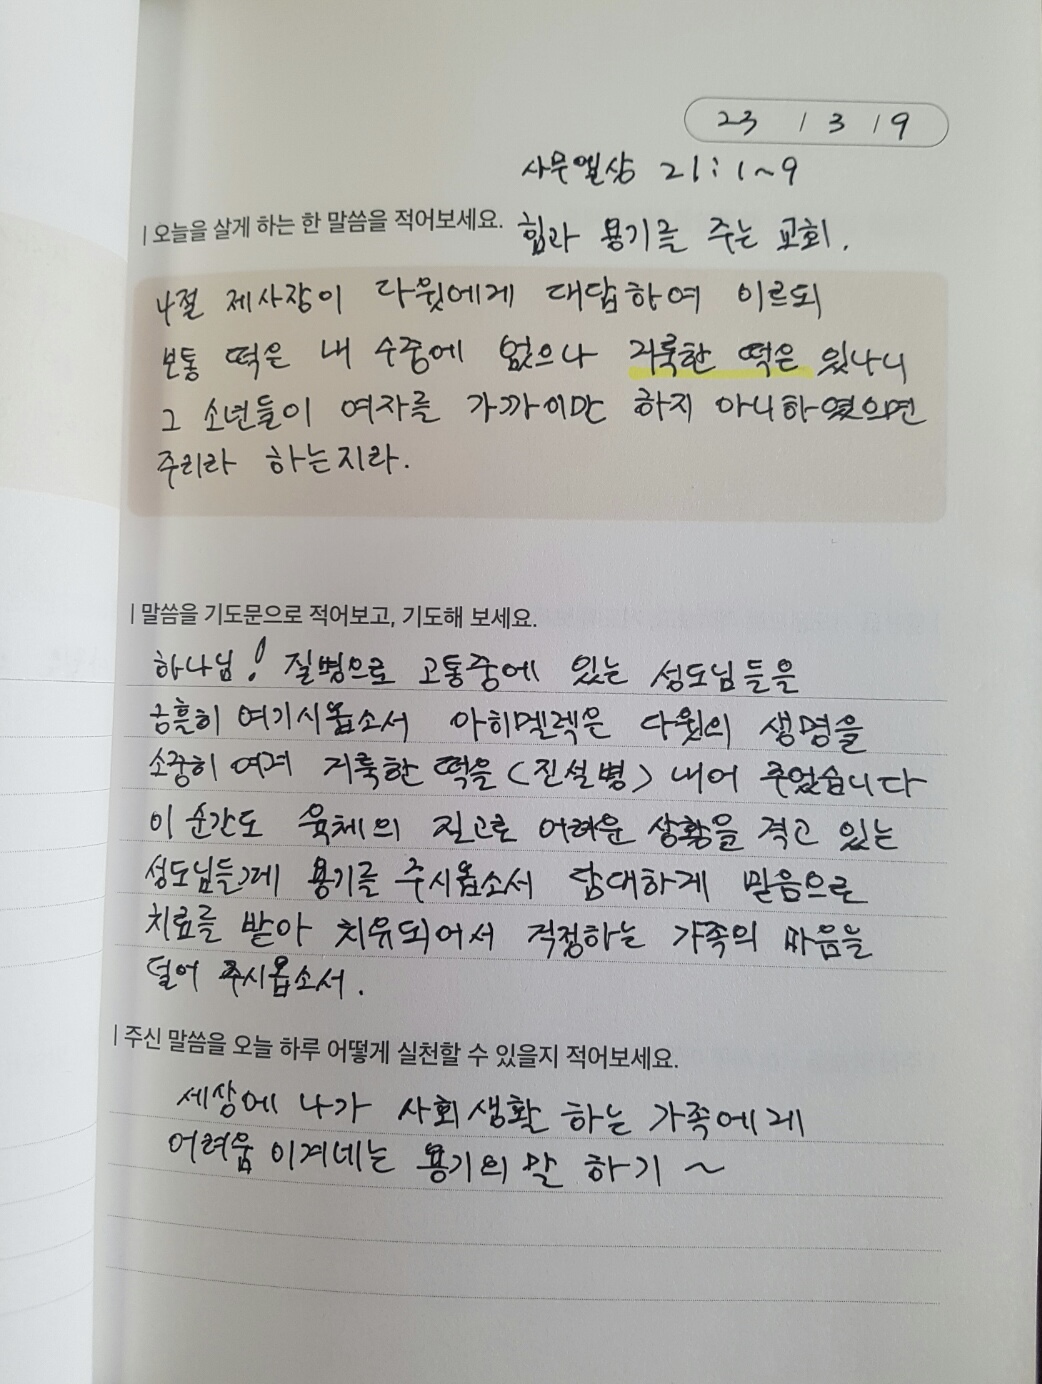 23 / 3 / 9
사무엘상 21:1~9
| 오늘을 살게 하는 한 말씀을 적어보세요. 힘과 용기를 주는 교회.
4절 제사장이 다윗에게 대답하여 이르되
보통 떡은 내 수중에 없으나 거룩한 떡은 있나니
그 소년들이 여자를 가까이만 하지 아니하였으면
주리라 하는지라.
| 말씀을 기도문으로 적어보고, 기도해 보세요.
하나님! 질병으로 고통중에 있는 성도님들을
긍휼히 여기시옵소서 아히멜렉은 다윗의 생명을
소중히 여겨 거룩한 떡을 (진설병) 내어 주었습니다
이 순간도 육체의 질고로 어려운 상황을 격고 있는
성도님들게 용기를 주시옵소서 담대하게 믿음으로
치료를 받아 치유되어서 걱정하는 가족의 마음을
덜어 주시옵소서.
| 주신 말씀을 오늘 하루 어떻게 실천할 수 있을지 적어보세요.
세상에 나가 사회생활 하는 가족에게
어려움 이겨네는 용기의 말 하기 ~